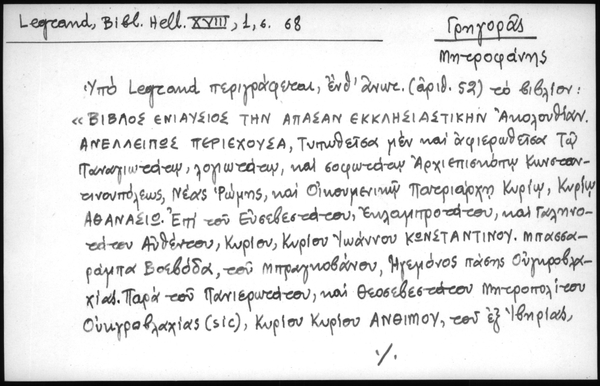 Legrand, Bibl. Hell. XVIII, 1, σ. 68
Γρηγορᾶς
Μητροφάνης
Ὑπὸ Legrand περιγράφεται, ἔνθ' ἀνωτ. (ἀριθ. 52) τὸ βιβλίον:
« ΒΙΒΛΟΣ ΕΝΙΑΥΣΙΟΣ ΤΗΝ ΑΠΑΣΑΝ ΕΚΚΛΗΣΙΑΣΤΙΚΗΝ Ἀκολουθίαν.
ΑΝΕΛΛΕΙΠΩΣ ΠΕΡΙΕΧΟΥΣΑ, Τυπωθεῖσα μὲν καὶ ἀφιερωθεῖσα Τῷ
Παναγιωτάτῳ, λογιωτάτῳ, καὶ σοφωτάτῳ Ἀρχιεπισκόπῳ Κωνσταν-
τινουπόλεως, Νέας Ῥώμης, καὶ Οἰκουμενικῷ Πατριάρχῃ Κυρίῳ, Κυρίῳ
ΑΘΑΝΑΣΙΩ. Ἐπὶ τοῦ Εὐσεβεστάτου, Ἐκλαμπροτάτου, καὶ Γαληνο-
τάτου Αὐθέντου, Κυρίου, Κυρίου Ἰωάννου ΚΩΝΣΤΑΝΤΙΝΟΥ. Μπασσα-
ράμπα Βοεβόδα, τοῦ Μπραγκοβάνου, Ἡγεμόνος πάσης Οὐγκροβλα-
χίας. Παρὰ τοῦ Πανιερωτάτου, καὶ Θεοσεβεστάτου Μητροπολίτου
Οὐνγροβλαχίας (sic), Κυρίου Κυρίου ΑΝΘΙΜΟΥ, τοῦ ἐξ Ἰβηρίας,
./.